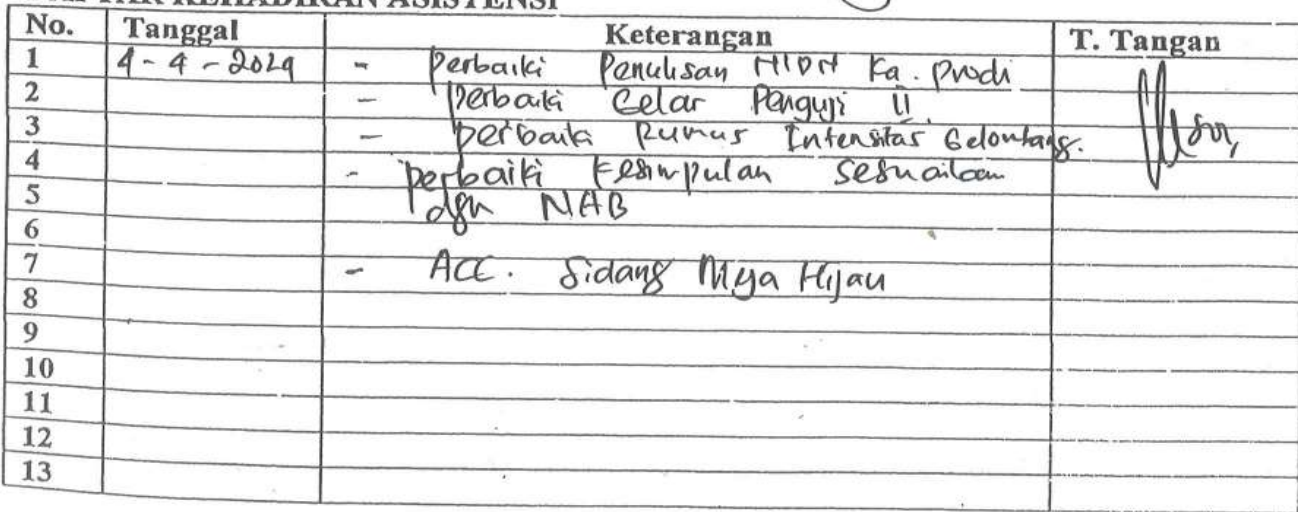 DAFTAR KEHADIRAN ASISTENSI
No. Tanggal Keterangan T. Tangan
1 4-4-2024 - Perbaiki Penulisan NIDN Ka. Prodi
2 - Perbaiki Gelar Penguji II.
3 - perbaiki Rumus Intensitas Gelombang.
4 - perbaiki Kesimpulan sesuaikan
5 dgn NAB
6
7 - ACC. Sidang Meja Hijau
8
9
10
11
12
13